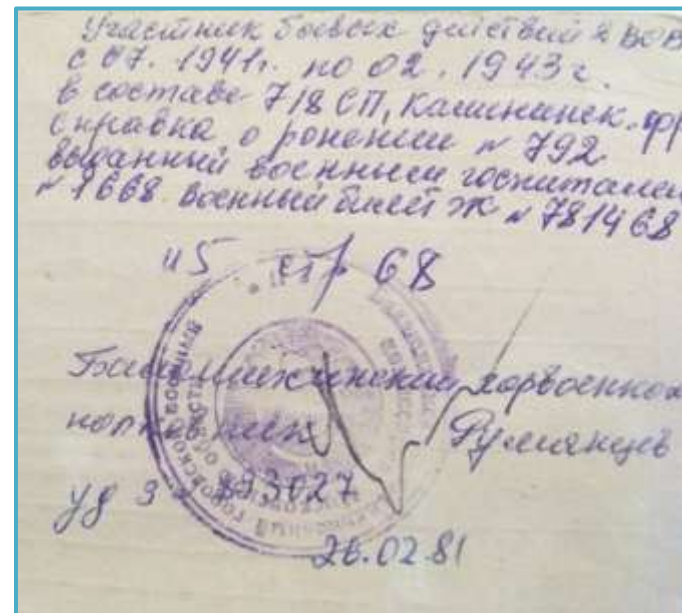 Участник боевых действий в ВОВ
с 07. 1941г. по 02. 1943 г.
в составе 718 СП, Калининск. фр
справка о ранении № 792
выданный военным госпиталем
№ 1668 военный билет Ж № 781468
стр 68
Балашихинский горвоенком
полковник Румянцев
уд 3 № 293027
26.02.81